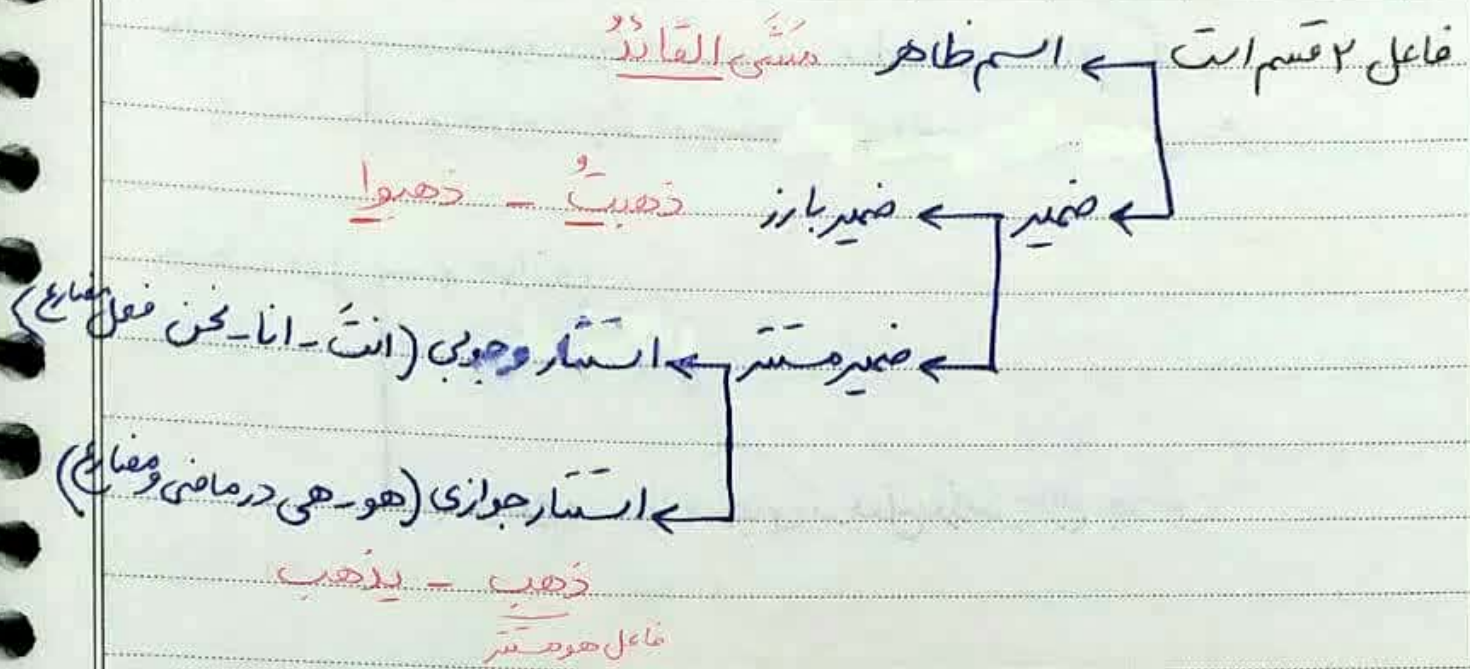 فاعل ۲ قسم است ← اسم ظاهر مَشَی القائدُ
ضمیر ← ضمیر بارز ذهبتُ - ذهبوا
ضمیر مستتر ← استتار وجوبی (انتَ - انا - نحن فعل مضارع)
استتار جوازی (هو - هی در ماضی و مضارع)
ذهب - یذهب
فاعل هو مستتر